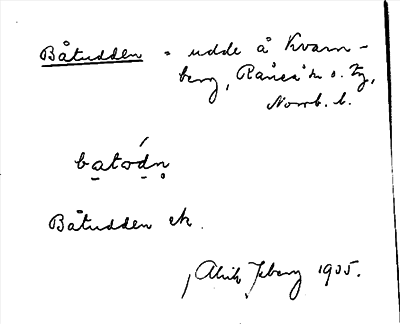 Båtudden = udde å Kvarn-
berg, Råneå sn o. tg,
Norrb. l.
batodn
Båtudden ek.
Alrik Isberg 1935.